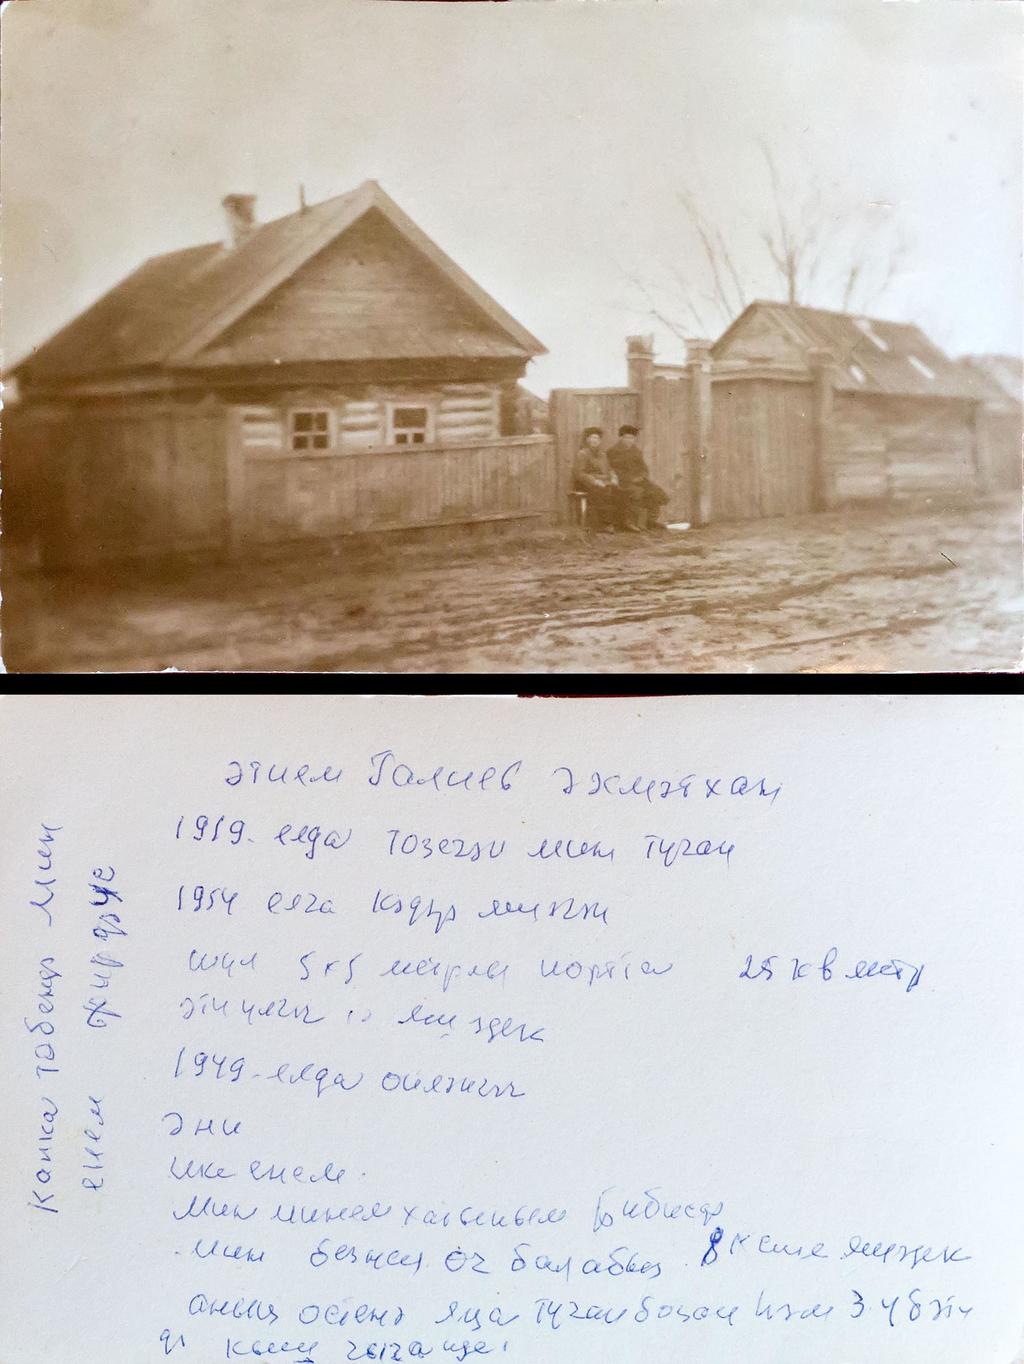 әтием Галиев Әхмәтхан
1919. елда төзегән мин туган
1954 елга кадәр яшәгән
шул 5х5 метрлы йортта 25 кв метр
яшәдек
1949-елда өйләнгәч
Әни
ике енем.
Мин минем хатыным Бибисар
мин безнең өч балабыз 8 кеше яшәдек
аның өстенә яңа туган бозау һәм 3.4 бәти
дә кыш чыга иде.
Капка төбендә Мин
енем